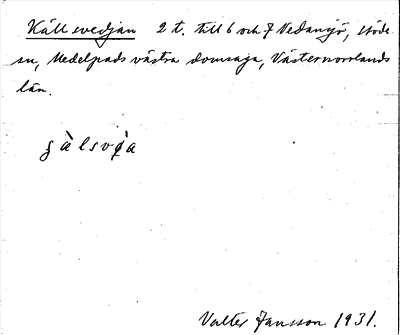 Källsvedjan 2 t. till 6 och 7 Vedansjö, Stöde
sn, Medelpads västra domsaga, Västernorrlands
län.
Valter Jansson 1931.